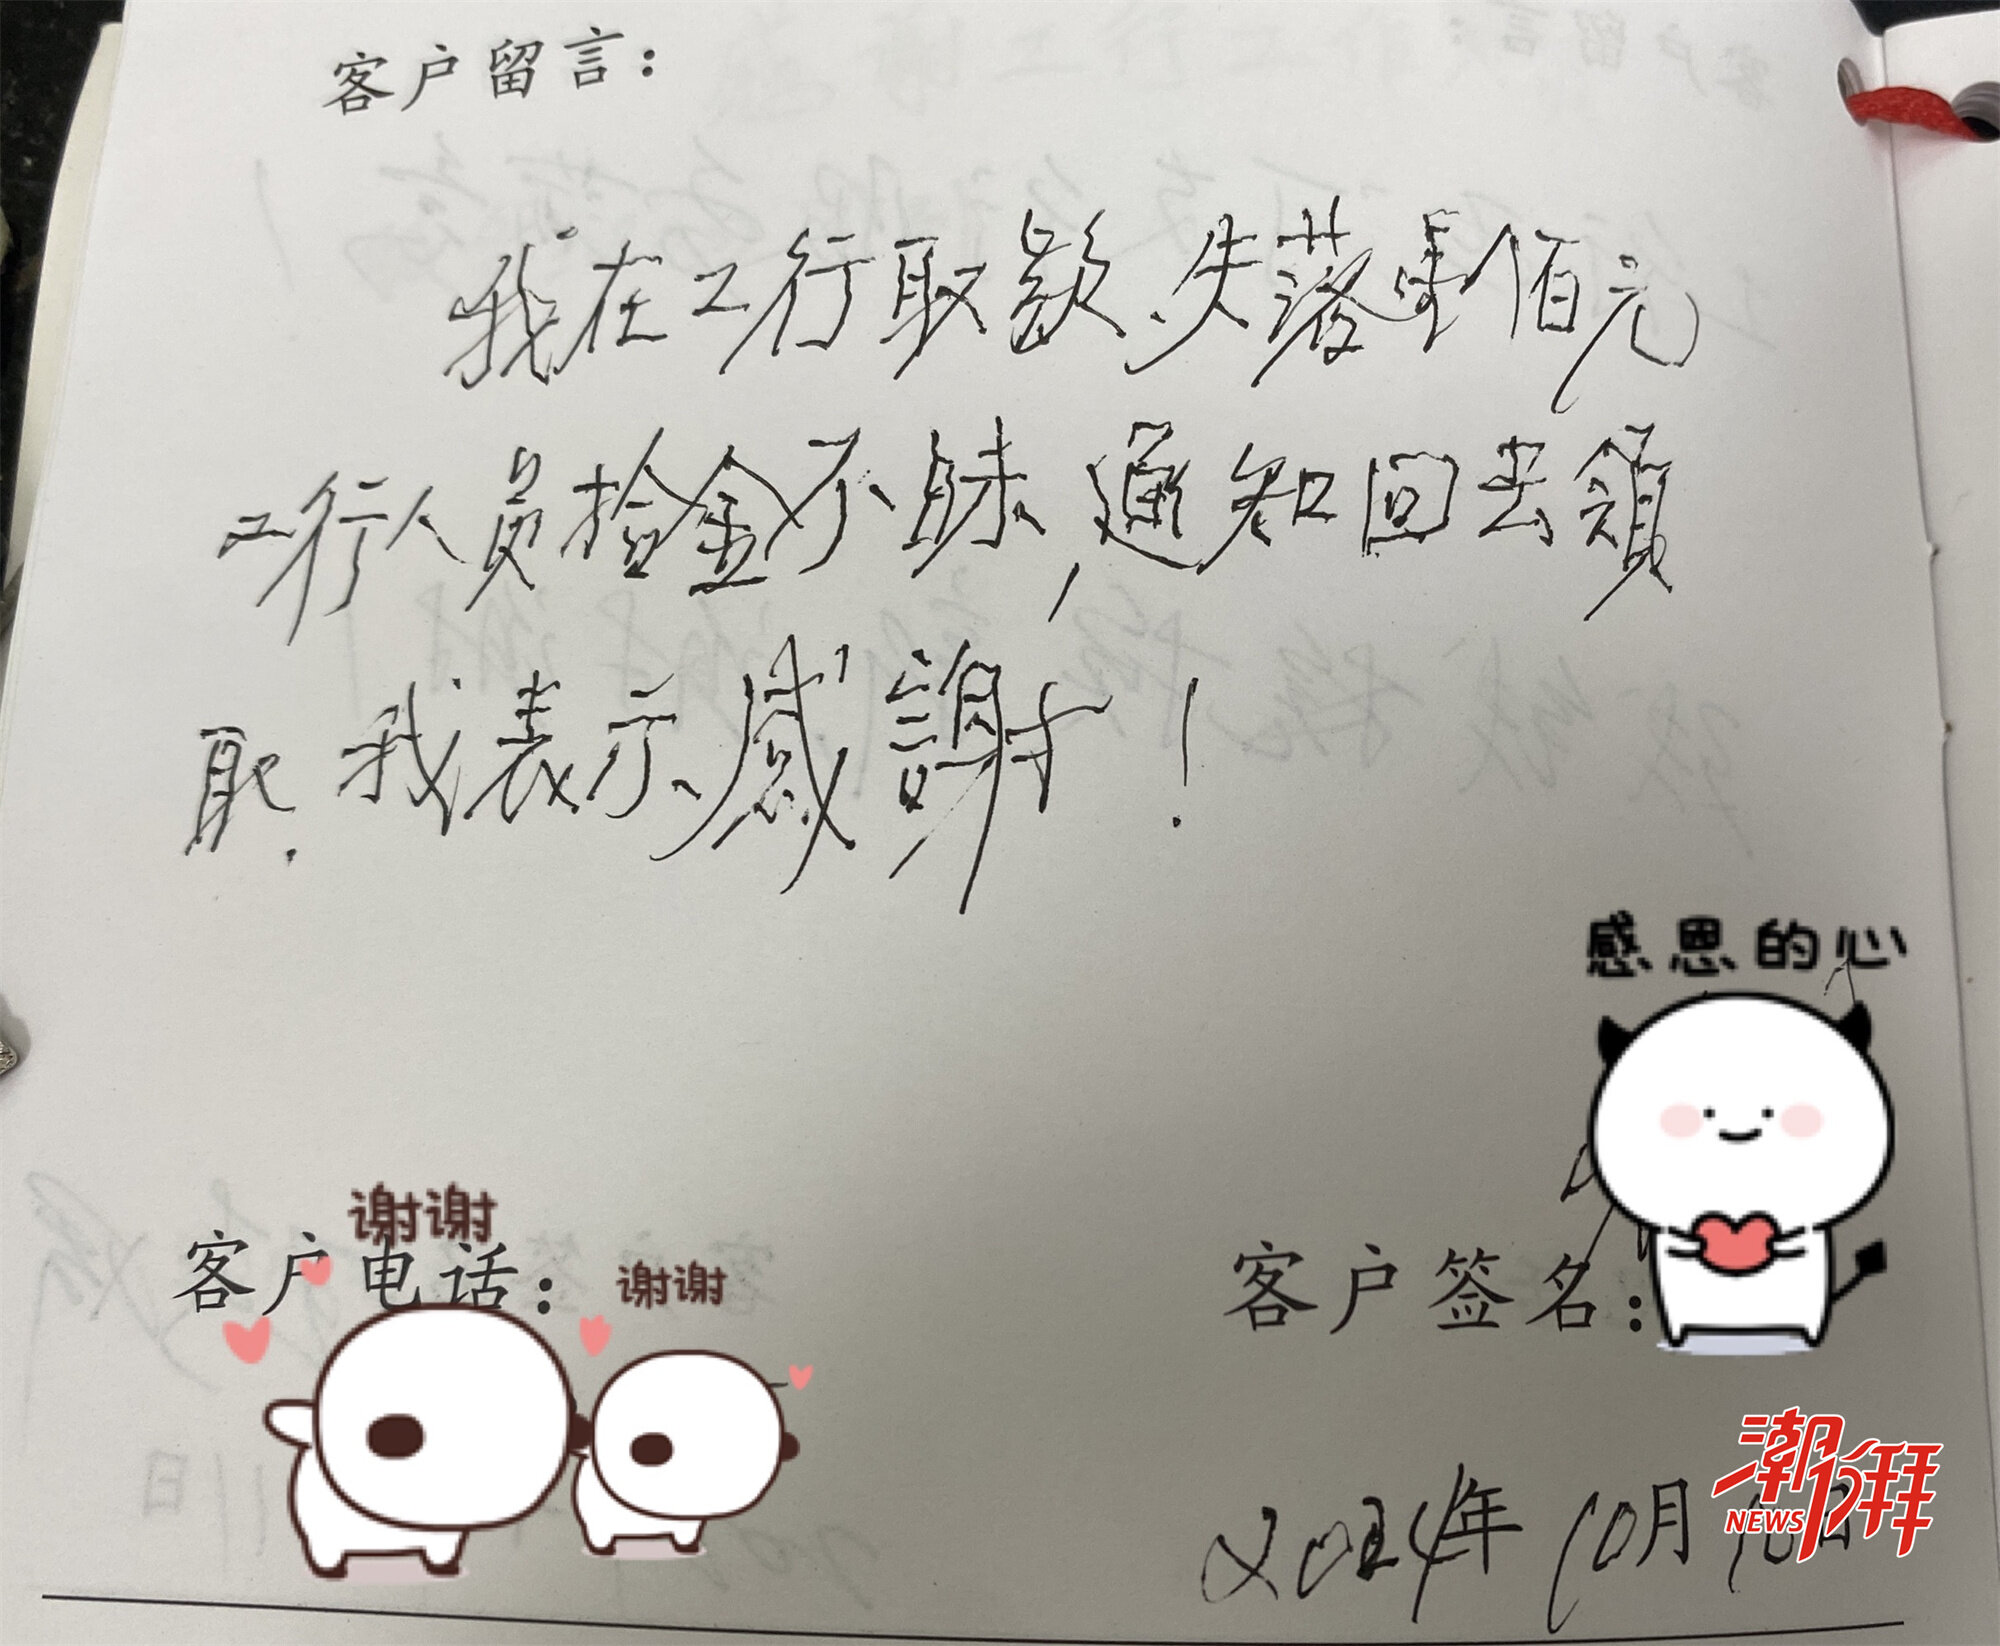 客户留言：
我在工行取款,失落佰元
工行人員拾金不昧,通知回去領
取.我表示感謝!
感恩的心
谢谢
谢谢
客户电话：
客户签名：
2024年10月10日
潮拜
NEWS